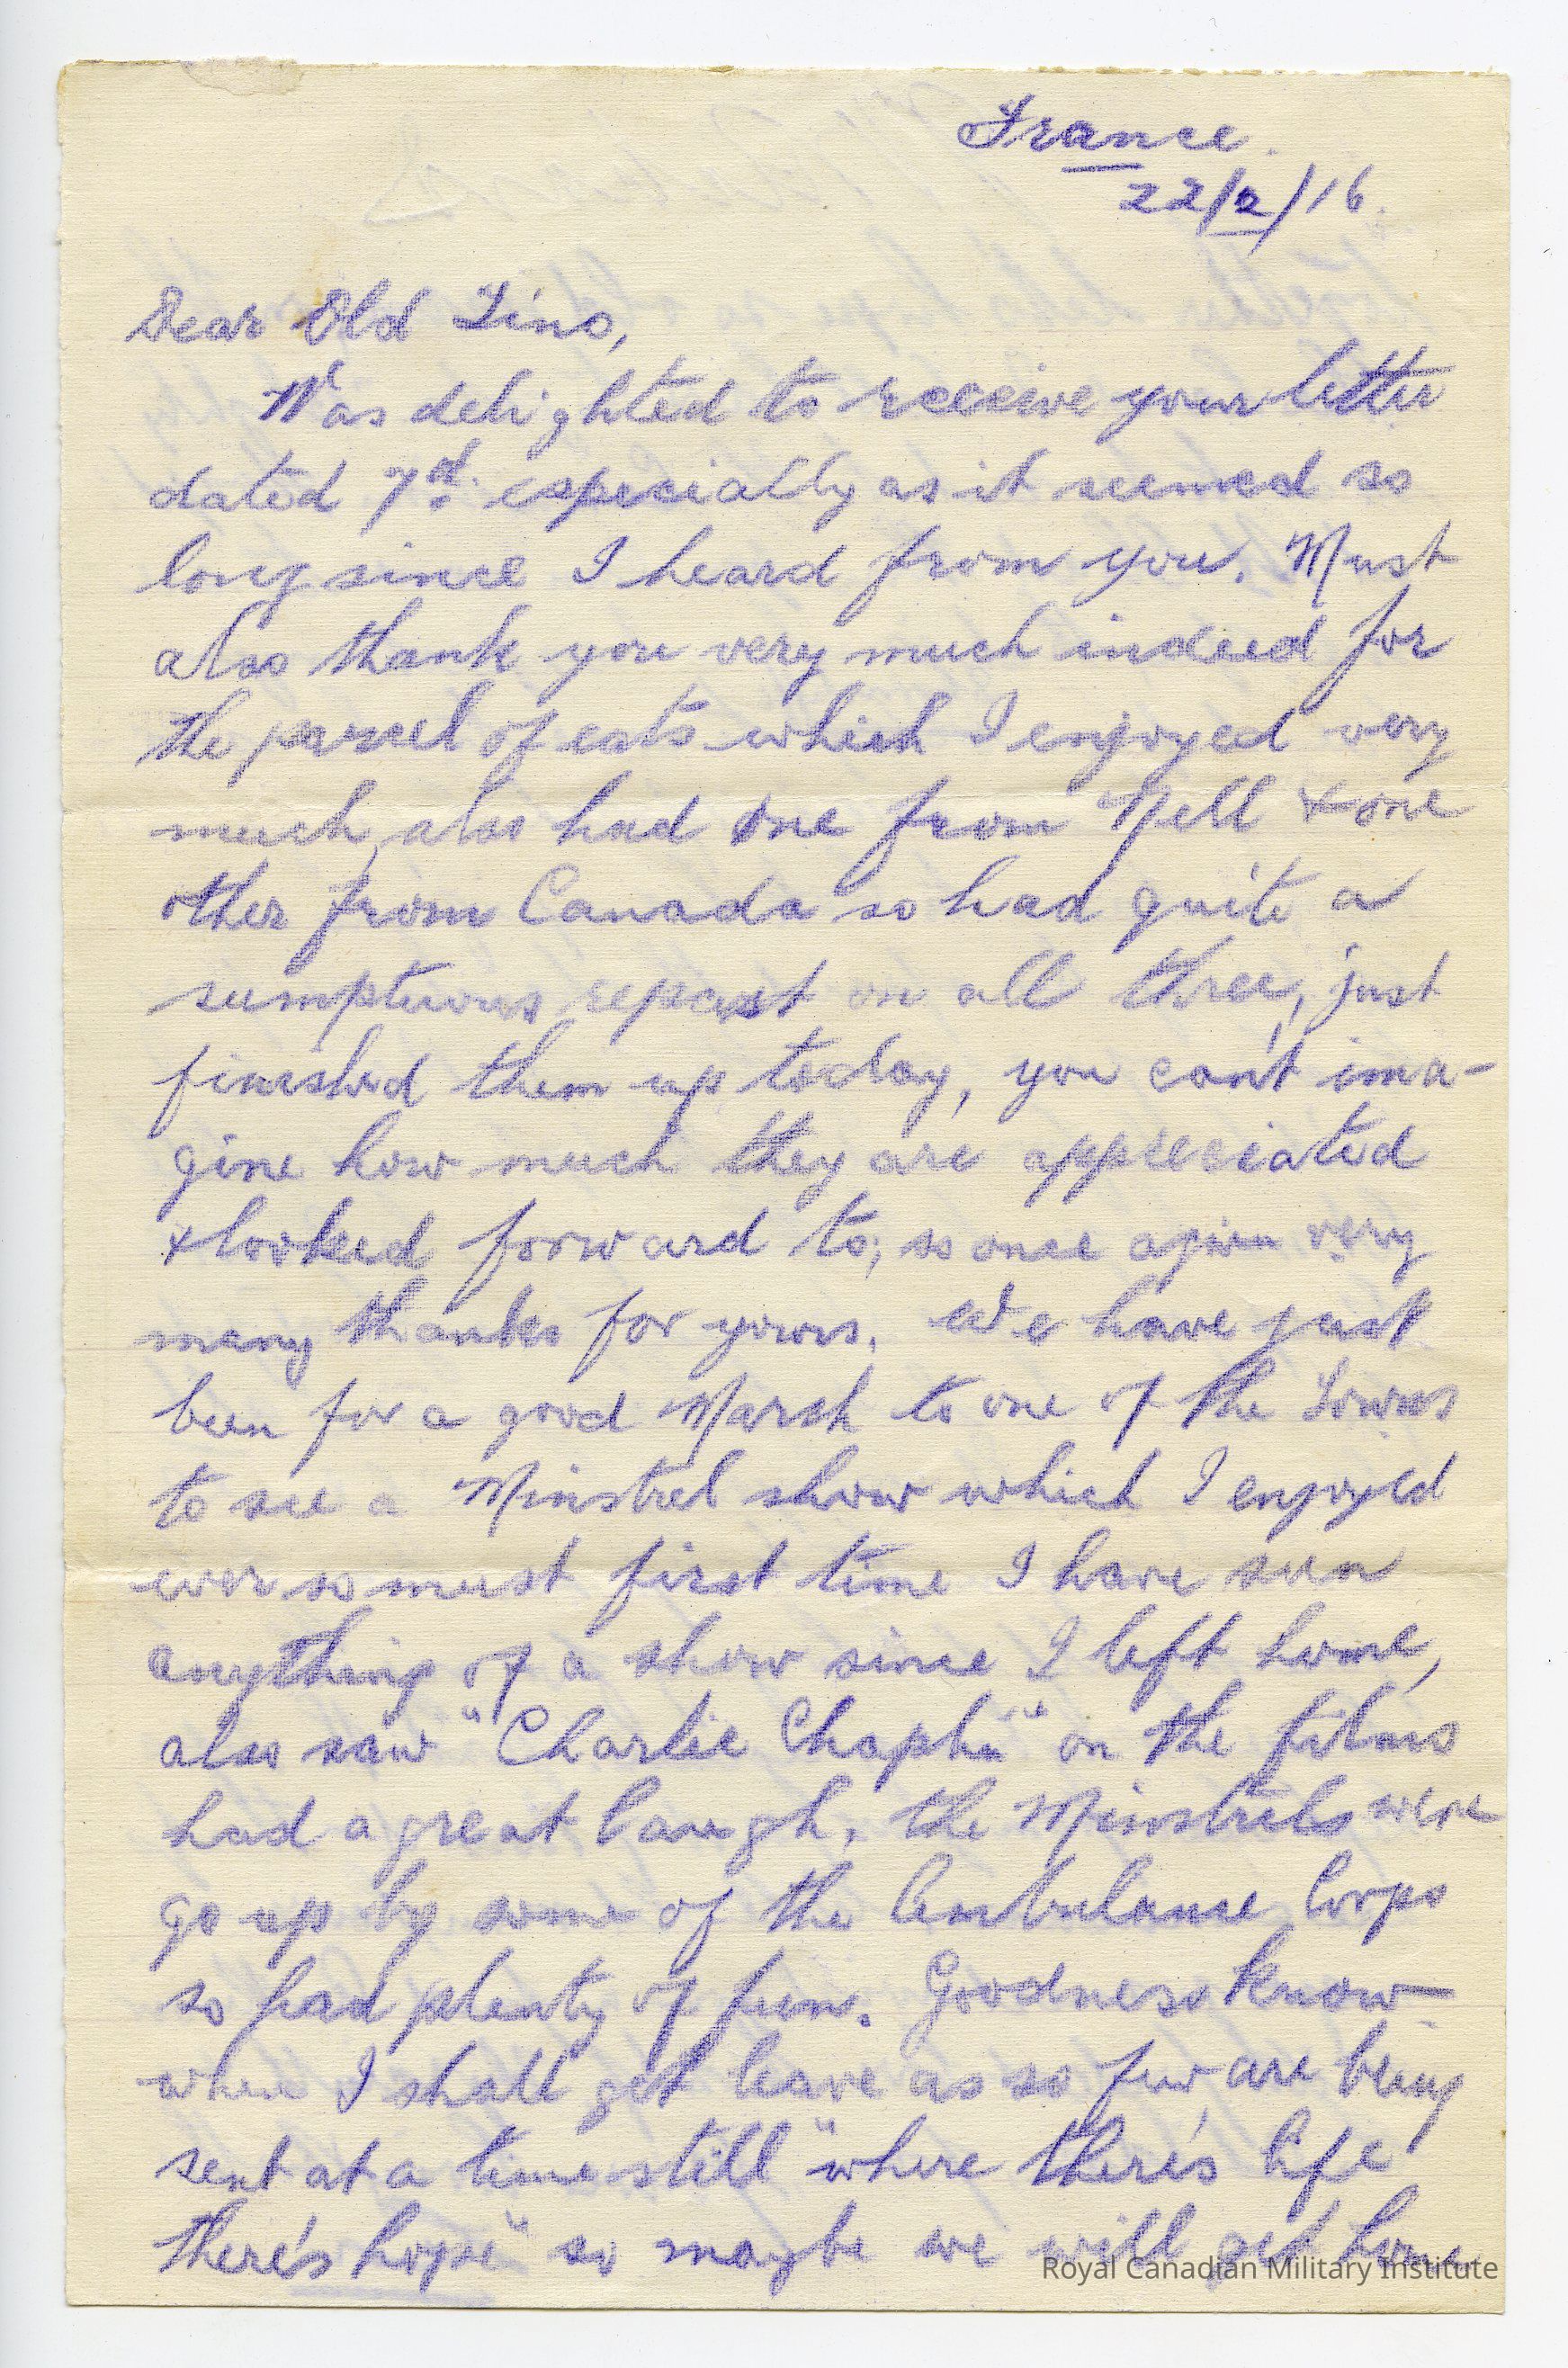 France.
22/2/16.
Dear Old Tino,
Was delighted to receive your letter
dated 7th. especially as it seemed so
long since I heard from you. Must
also thank you very much indeed for
the parcel of eats which I enjoyed very
much, also had one from Nell & one
other from Canada so had quite a
sumptuous repast on all three, just
finished them up today, you can't ima-
gine how much they are appreciated
& looked forward to; so once again very
many thanks for yours. We have just
been for a good March to one of the Towns
to see a Minstrel show which I enjoyed
ever so must first time I have seen
anything of a show since I left home,
also saw "Charlie Chaplin" on the films
had a great laugh, the Minstrels were
go up by some of the Ambulance Corps
so had plenty of fun. Goodness know
when I shall get leave as so few are being
sent at a time still "where there's life
there's hope" so maybe we will get home
Royal Canadian Military Institute